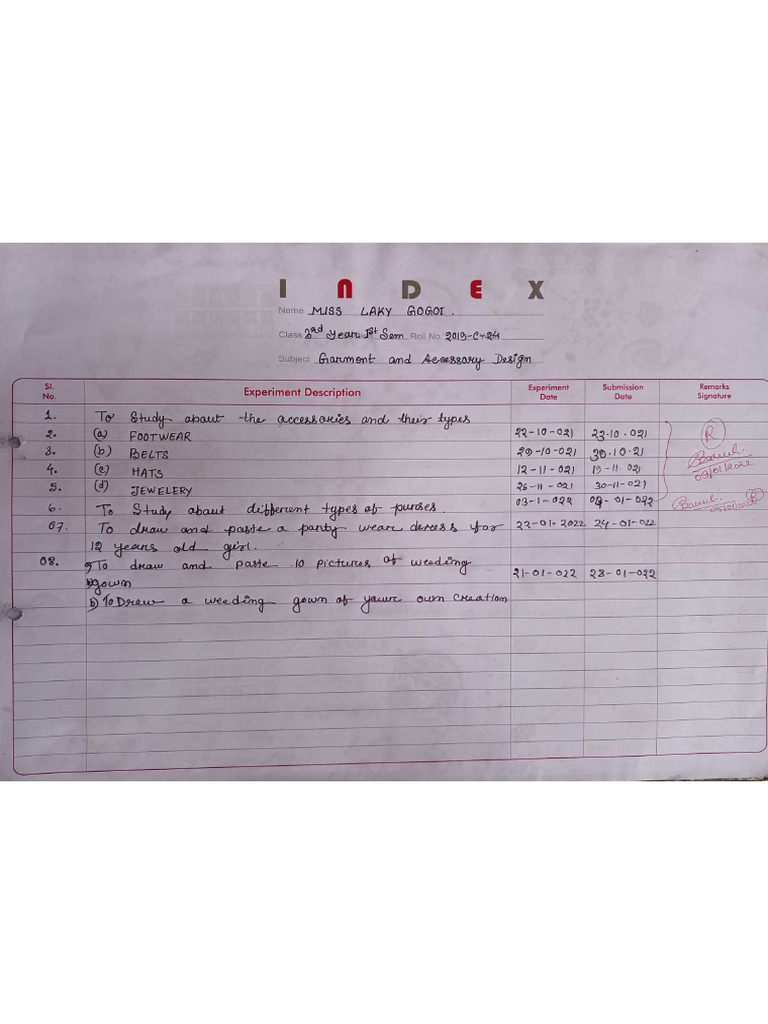 INDEX
Name MISS LAKY GOGOI.
Class 3rd Year 1st Sem Roll No. 2019-C-24
Subject Garment and Accessory Design
Sl. No. Experiment Description Experiment Date Submission Date Remarks Signature
1. To Study about the accessaries and their types
2. (a) FOOTWEAR 22-10-021 23.10.021
3. (b) BELTS 29-10-021 30.10.21
4. (c) HATS 12-11-021 19-11 021
5. (d) JEWELERY 26-11-021 30-11-021
6. To Study about different types of purses. 03-1-022 04-01-022
07. To draw and paste a party wear dress for 22-01-2022 24-01-022
12 years old girl.
08. a) To draw and paste 10 pictures of weeding
gown 21-01-022 28-01-022
b) To Draw a weeding gown of your own creation
R